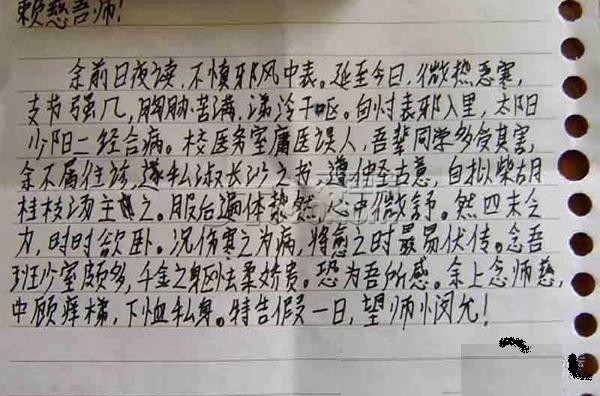 赖慈吾师!
余前日夜读,不慎邪风中表。延至今日,微热恶寒,
支节强几,胸胁苦满,涕泠干呕。自忖表邪入里,太阳
少阳二经合病。校医务室庸医误人,吾辈同学多受其害,
余不属往诊,遂私淑长沙之书,遵仲圣古意,自拟柴胡
桂枝汤主之。服后遍体漐然,心中微舒。然四末乏
力,时时欲卧。况伤寒之为病,将愈之时最易伏传。念吾
班少室颇多,千金之躯怯柔娇贵。恐为吾所感。余上念师慈,
中顾庠梯,下恤私身。特告假一日,望师悯允!